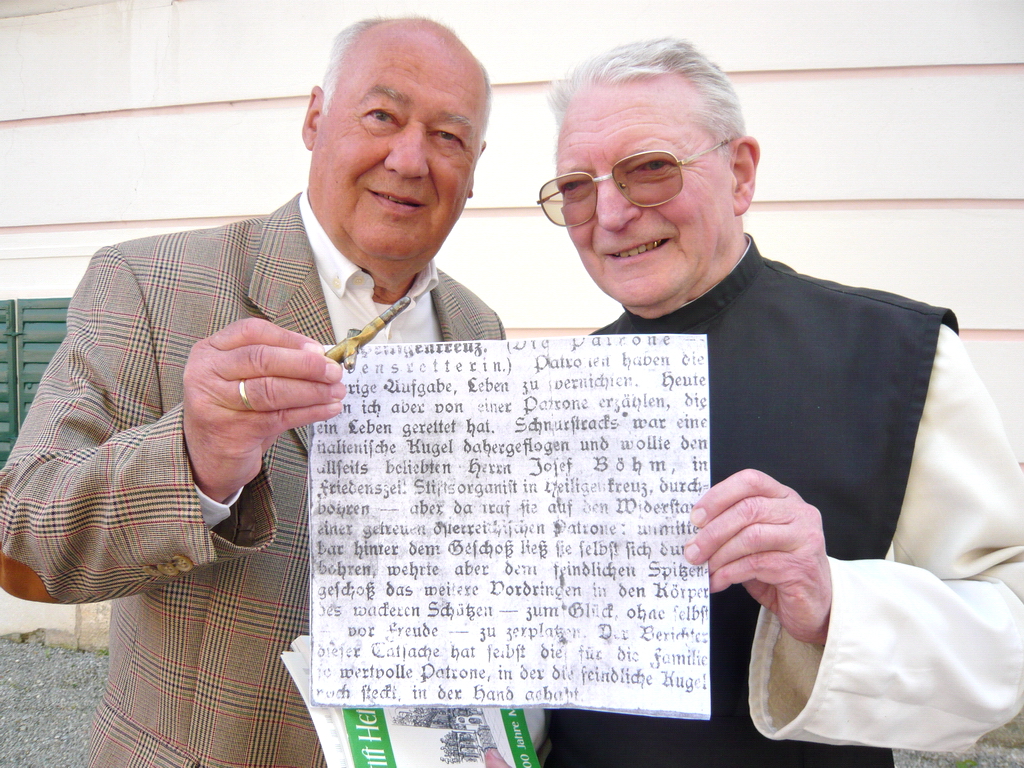 Heiligenkreuz. (Die Patrone
ensretterin.) Patronen haben die
rige Aufgabe, Leben zu vernichten. Heute
n ich aber von einer Patrone erzählen, die
ein Leben gerettet hat. Schnurstracks war eine
italienische Kugel dahergeflogen und wollte den
allseits beliebten Herrn Josef Böhm, in
Friedenszeit Stiftsorganist in Heiligenkreuz, durch-
bohren — aber da traf sie auf den Widerstand
einer getreuen österreichischen Patrone: unmittel-
bar hinter dem Geschoß ließ sie selbst sich durch-
bohren, wehrte aber dem feindlichen Spitzen-
geschoß das weitere Vordringen in den Körper
des wackeren Schützen — zum Glück, ohne selbst
vor Freude — zu zerplatzen. Der Berichter
dieser Tatsache hat selbst die für die Familie
so wertvolle Patrone, in der die feindliche Kugel
noch steckt, in der Hand gehabt.
00 Jahre